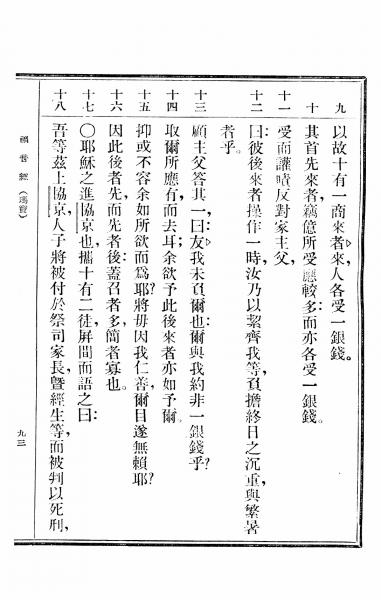 九 以故十有一商來者來、人各受一銀錢。
十 其首先來者、竊億所受應較多、而亦各受一銀錢。
十一 受而讟嘖反對家主父、
十二 曰、彼後來者、操作一時、汝乃以絜齊我等、負擔終日之沉重與繁暑
者乎。
十三 顧主父答其一曰、友、我未負爾也、爾與我約非一銀錢乎？
十四 取爾所應有而去耳、余欲予此後來者亦如予爾。
十五 抑或不容余如所欲而爲耶？將毋因我仁善、爾目遂無賴耶？
十六 因此後者先而先者後、蓋召者多、簡者寡也。
十七 〇耶穌之進協京也、攜十有二徒、屏間而語之曰：
十八 吾等茲上協京、人子將被付於祭司家長、曁經生等、而被判以死刑、
福音經（瑪竇）
九三